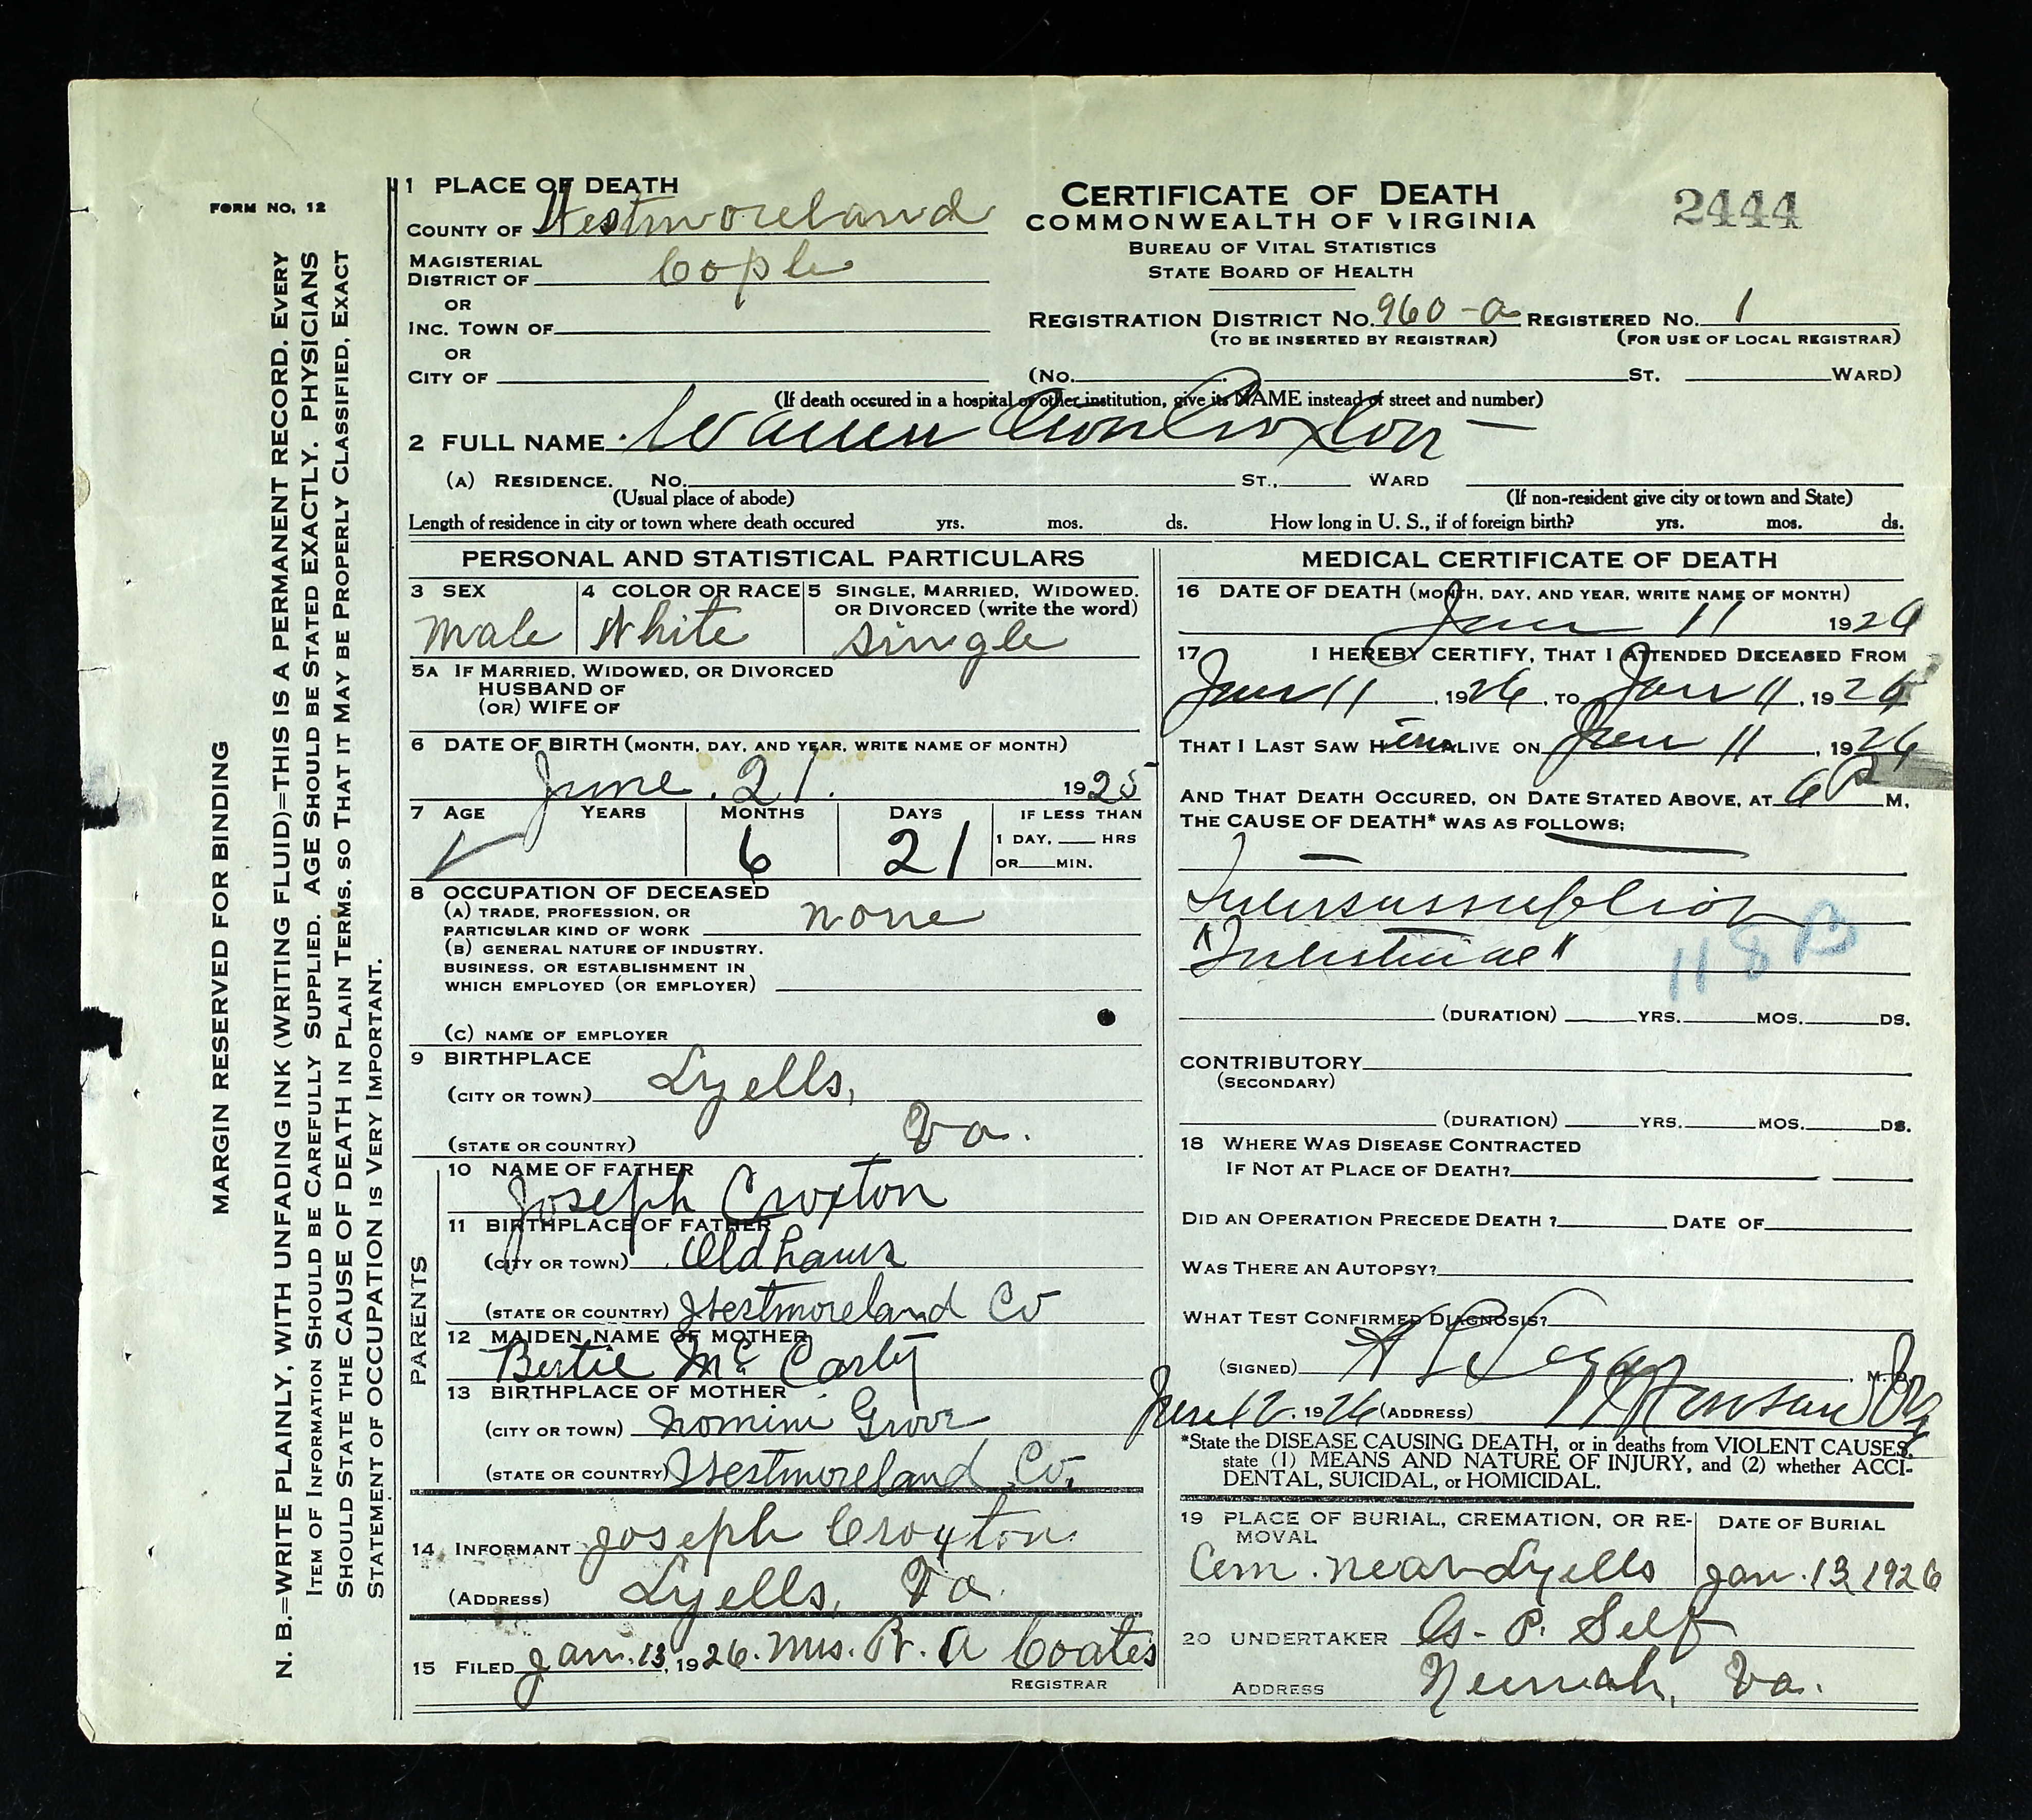 FORM NO. 12
MARGIN RESERVED FOR BINDING
N. B.=WRITE PLAINLY, WITH UNFADING INK (WRITING FLUID)=THIS IS A PERMANENT RECORD. EVERY
ITEM OF INFORMATION SHOULD BE CAREFULLY SUPPLIED. AGE SHOULD BE STATED EXACTLY. PHYSICIANS
SHOULD STATE THE CAUSE OF DEATH IN PLAIN TERMS. SO THAT IT MAY BE PROPERLY CLASSIFIED, EXACT
STATEMENT OF OCCUPATION IS VERY IMPORTANT.
1 PLACE OF DEATH
COUNTY OF Westmoreland
MAGISTERIAL
DISTRICT OF Cople
OR
INC. TOWN OF
OR
CITY OF
CERTIFICATE OF DEATH
COMMONWEALTH OF VIRGINIA
BUREAU OF VITAL STATISTICS
STATE BOARD OF HEALTH
2444
REGISTRATION DISTRICT NO. 960-a REGISTERED NO. 1
(TO BE INSERTED BY REGISTRAR) (FOR USE OF LOCAL REGISTRAR)
(NO. ST. WARD)
(If death occured in a hospital or other institution, give its NAME instead of street and number)
2 FULL NAME Warren Croxton
(A) RESIDENCE. NO. ST., WARD
(Usual place of abode) (If non-resident give city or town and State)
Length of residence in city or town where death occured yrs. mos. ds. How long in U. S., if of foreign birth? yrs. mos. ds.
PERSONAL AND STATISTICAL PARTICULARS
3 SEX 4 COLOR OR RACE 5 SINGLE, MARRIED, WIDOWED.
OR DIVORCED (write the word)
Male White Single
5A IF MARRIED, WIDOWED, OR DIVORCED
HUSBAND OF
(OR) WIFE OF
6 DATE OF BIRTH (MONTH, DAY, AND YEAR, WRITE NAME OF MONTH)
June. 21. 1925
7 AGE YEARS MONTHS DAYS IF LESS THAN
1 DAY, HRS
6 21 OR MIN.
8 OCCUPATION OF DECEASED
(A) TRADE, PROFESSION, OR
PARTICULAR KIND OF WORK none
(B) GENERAL NATURE OF INDUSTRY.
BUSINESS, OR ESTABLISHMENT IN
WHICH EMPLOYED (OR EMPLOYER)
(C) NAME OF EMPLOYER
9 BIRTHPLACE
(CITY OR TOWN) Lyells,
(STATE OR COUNTRY) Va.
PARENTS
10 NAME OF FATHER
Joseph Croxton
11 BIRTHPLACE OF FATHER
(CITY OR TOWN) Oldhams
(STATE OR COUNTRY) Westmoreland Co
12 MAIDEN NAME OF MOTHER
Bertie McCarty
13 BIRTHPLACE OF MOTHER
(CITY OR TOWN) Nomini Grove
(STATE OR COUNTRY) Westmoreland Co,
14 INFORMANT Joseph Croxton
(ADDRESS) Lyells, Va.
15 FILED Jan. 13, 1926. Mrs. R. A Coates
REGISTRAR
MEDICAL CERTIFICATE OF DEATH
16 DATE OF DEATH (MONTH, DAY, AND YEAR, WRITE NAME OF MONTH)
Jan 11 1926
17 I HEREBY CERTIFY, THAT I ATTENDED DECEASED FROM
Jan 11, 1926, TO Jan 11, 1926
THAT I LAST SAW H im ALIVE ON Jan 11, 1926
AND THAT DEATH OCCURED, ON DATE STATED ABOVE, AT 6 P M.
THE CAUSE OF DEATH* WAS AS FOLLOWS:
Intersusseption
"Intestinal"
118 B
(DURATION) YRS. MOS. DS.
CONTRIBUTORY
(SECONDARY)
(DURATION) YRS. MOS. DS.
18 WHERE WAS DISEASE CONTRACTED
IF NOT AT PLACE OF DEATH?
DID AN OPERATION PRECEDE DEATH? DATE OF
WAS THERE AN AUTOPSY?
WHAT TEST CONFIRMED DIAGNOSIS?
(SIGNED) M. D.
Jan 12. 1926 (ADDRESS)
*State the DISEASE CAUSING DEATH, or in deaths from VIOLENT CAUSES,
state (1) MEANS AND NATURE OF INJURY, and (2) whether ACCI-
DENTAL, SUICIDAL, or HOMICIDAL.
19 PLACE OF BURIAL, CREMATION, OR RE- DATE OF BURIAL
MOVAL
Cem. near Lyells Jan. 13, 1926
20 UNDERTAKER P. Self
ADDRESS Neenah, Va.